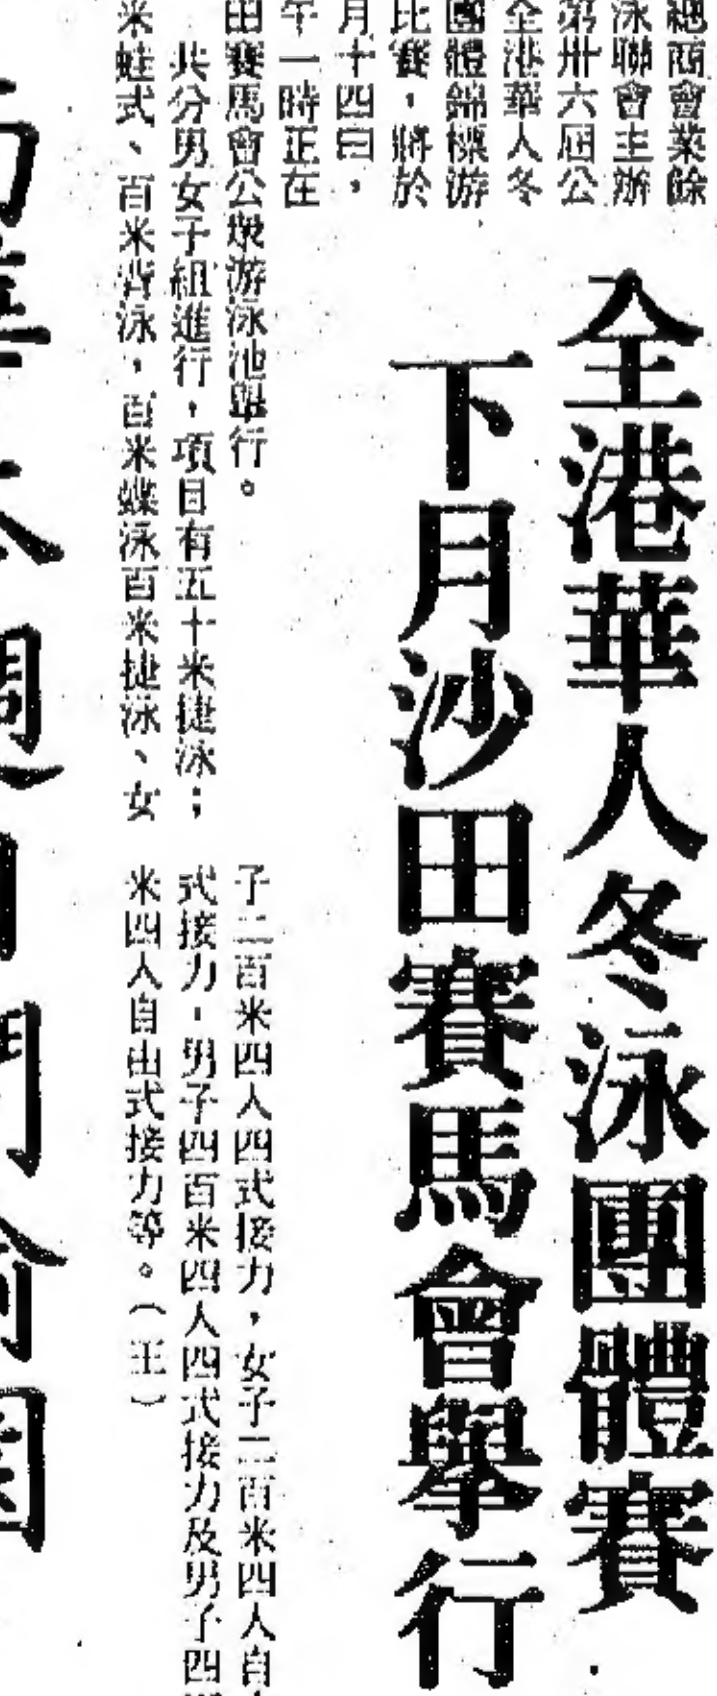 全港華人冬泳團體賽
下月沙田賽馬會舉行
總商會業餘
泳聯會主辦
第卅六屆公
全港華人冬
團體錦標游
比賽，將於
月十四日，
午一時正在
田賽馬會公眾游泳池舉行。
共分男女子組進行，項目有五十米捷泳；
米蛙式、百米背泳，百米蝶泳百米捷泳、女
子二百米四人四式接力，女子二百米四人自
式接力，男子四百米四人四式接力及男子四
米四人自由式接力等。（王）